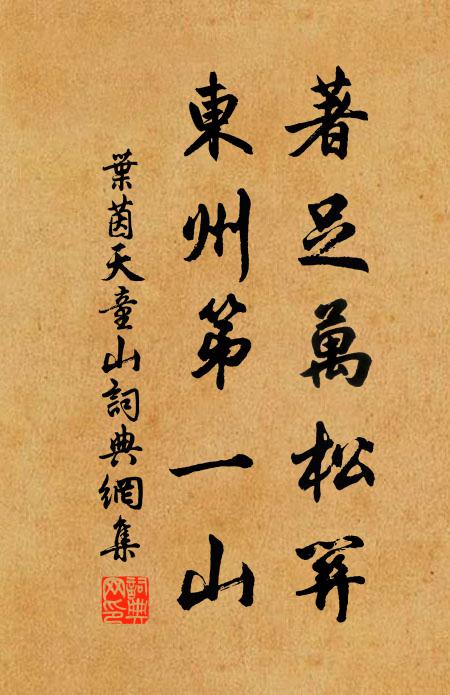 著足萬松關
東州第一山
葉茵天童山詞典網集
詞典网印